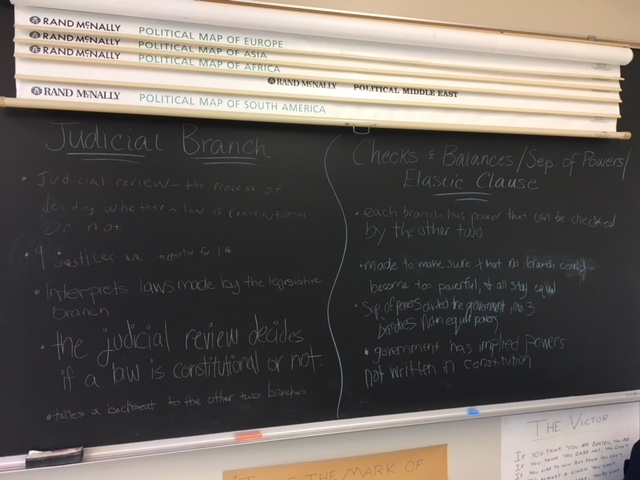 RAND MCNALLY POLITICAL MAP OF EUROPE
RAND MCNALLY POLITICAL MAP OF ASIA
RAND MCNALLY POLITICAL MAP OF AFRICA
RAND MCNALLY POLITICAL MIDDLE EAST
RAND MCNALLY POLITICAL MAP OF SOUTH AMERICA
Judicial Branch
• Judicial review - the process of
deciding whether a law is constitutional
or not.
• 9 justices are appointed for life
• Interprets laws made by the legislative
branch
• the judicial review decides
if a law is constitutional or not.
• takes a backseat to the other two branches
Checks & Balances/Sep of Powers/
Elastic Clause
• each branch has power that can be checked
by the other two
• Made to make sure that no branch could
become too powerful, & all stay equal
• Sep. of powers divided the government into 3
branches with equal powers
• government has implied powers
not written in constitution
THE VICTOR
IF YOU THINK YOU ARE BEATEN, YOU ARE
IF YOU THINK YOU DARE NOT, YOU DON'T
THE MARK OF